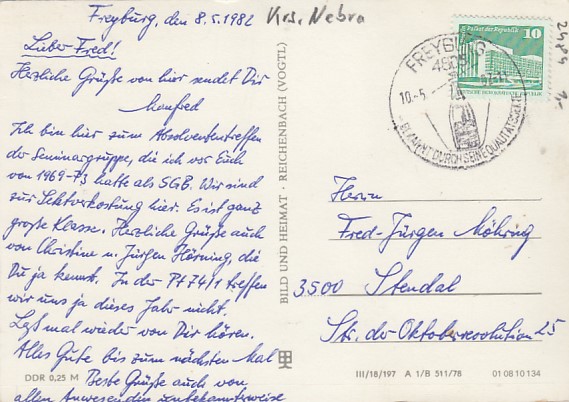 Freyburg, den 8.5.1982
Krs. Nebra
Lieber Fred!
Herzliche Grüße von hier sendet Dir
Manfred
Ich bin hier zum Absolvententreffen
der Seminargruppe, die ich vor Euch
von 1969-73 hatte als SGB. Wir sind
zur Sektverkostung hier. Es ist ganz
große Klasse. Herzliche Grüße auch
von Christine u. Jürgen Hörning, die
Du ja kennst. In der Pt 74/1 treffen
wir uns ja dieses Jahr nicht.
Laß mal wieder von Dir hören.
Alles Gute bis zum nächsten Mal
Beste Grüße auch von
allen Anwesenden unbekannterweise
DDR 0,25 M
BILD UND HEIMAT · REICHENBACH (VOGTL)
10
FREYBURG
4805
10.-5.
BEKANNT DURCH SEINE QUALITÄTSSEKTE
2484
Herrn
Fred-Jürgen Möhring
3500 Stendal
Str. der Oktoberrevolution 25
III/18/197 A 1/B 511/78 01 08 10 134